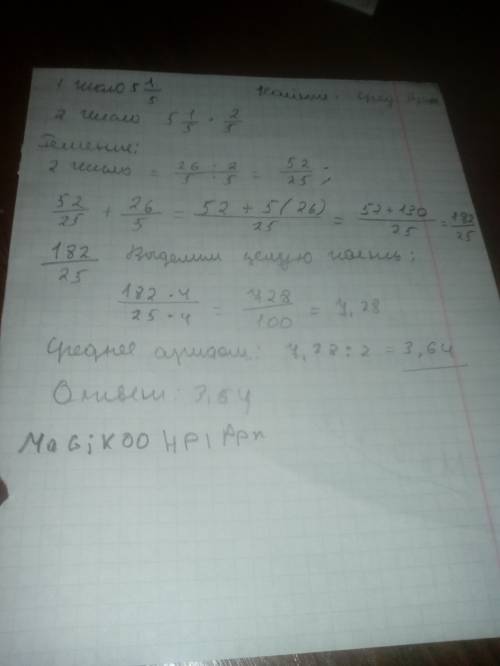 1 число 5 1/5 Найти: сред. Арифм
2 число 5 1/5 · 2/5
Решение:
2 число = 26 · 2 / 5 · 5 = 52/25;
52/25 + 26/5 = 52 + 5(26) / 25 = 52 + 130 / 25 = 182/25
182/25 Выделим целую часть:
182 · 4 / 25 · 4 = 728/100 = 7,28
Среднее арифм: 7,28 : 2 = 3,64
Ответ: 3,64